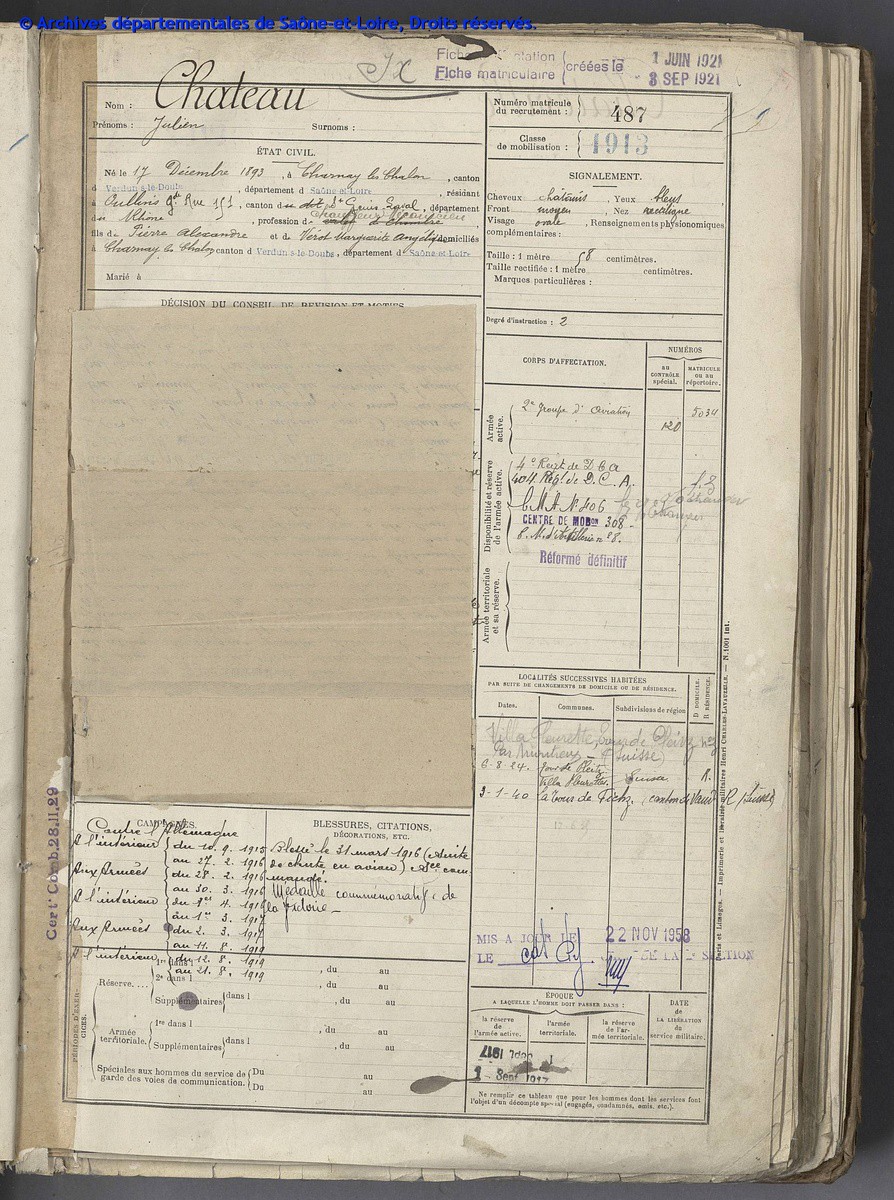 © Archives départementales de Saône-et-Loire, Droits réservés.
IX
Fiche matriculaire créées le
1 JUIN 1921
8 SEP 1921
Nom : Chateau
Prénoms : Julien Surnoms :
Numéro matricule du recrutement : 487
Classe de mobilisation : 1913
ÉTAT CIVIL.
Né le 17 Décembre 1893, à Charnay les Chalon, canton
d Verdun-s-le-Doubs, département d Saône-et-Loire, résidant
à Oullins Gde Rue 151, canton de St Genis Laval, département
du Rhône, profession de
fils de Pierre Alexandre et de Vérot Marguerite Angélique domiciliés
à Charnay les Chalon canton d Verdun-s-le-Doubs, département d Saône-et-Loire
Marié à
SIGNALEMENT.
Cheveux châtains, Yeux bleus
Front moyen, Nez rectiligne
Visage ovale, Renseignements physionomiques
complémentaires :
Taille : 1 mètre 58 centimètres.
Taille rectifiée : 1 mètre centimètres.
Marques particulières :
Degré d'instruction : 2
DÉCISION DU CONSEIL DE REVISION ET MOTIFS
CORPS D'AFFECTATION.
NUMÉROS
au CONTRÔLE spécial.
MATRICULE ou au répertoire.
Armée active.
2e Groupe d'aviation 120 5034
Disponibilité et réserve de l'armée active.
4e Regt de DCA
404 Regt de D.C.A.
C.M.A. N° 806
CENTRE DE MOBon 308
C.M. d'Artillerie n° 8.
Réformé définitif
Armée territoriale et sa réserve.
LOCALITÉS SUCCESSIVES HABITÉES
PAR SUITE DE CHANGEMENTS DE DOMICILE OU DE RÉSIDENCE.
Dates. Communes. Subdivisions de région
D DOMICILE. R RÉSIDENCE.
Villa Fleurette
(Suisse)
6-8-24. Tour de Peilz
Villa Fleurette Suisse R.
3-1-40 La Tour de Peilz (canton de Vaud R (Suisse)
Certt Comb. 28.11.29
CAMPAGNES.
Contre l'Allemagne
A l'intérieur du 10. 9. 1915
au 27. 2. 1916
Aux Armées du 28. 2. 1916
au 30. 3. 1916
A l'intérieur du 1er 4. 1916
au 1er 3. 1917
Aux Armées du 2. 3. 1917
au 11. 8. 1919
A l'intérieur du 12. 8. 1919
au 21. 8. 1919
BLESSURES, CITATIONS,
DÉCORATIONS, ETC.
Blessé le 31 mars 1916 (suite
de chute en avion) Sce com
mandé.
Médaille commémorative de
la Victoire
PÉRIODES D'EXERCICES.
Réserve....
1re dans l
2e dans l , du au
Supplémentaires dans l , du au
Armée territoriale.
1re dans l , du au
Supplémentaires dans l , du au
Spéciales aux hommes du service de garde des voies de communication.
Du au
Du au
MIS A JOUR LE 22 NOV 1958
LE DE LA SECTION
ÉPOQUE
A LAQUELLE L'HOMME DOIT PASSER DANS :
la réserve de l'armée active.
l'armée territoriale.
la réserve de l'armée territoriale.
DATE DE LA LIBÉRATION du service militaire.
Ne remplir ce tableau que pour les hommes dont les services font
l'objet d'un décompte spécial (engagés, condamnés, omis, etc.).
Paris et Limoges. — Imprimerie et librairie militaires Henri CHARLES-LAVAUZELLE. — N. 1001 Int.